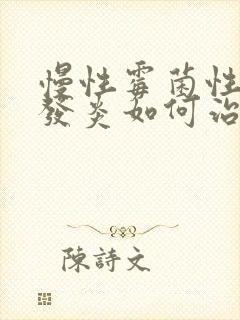 慢性霉菌性
發炎如何治
陳詩文